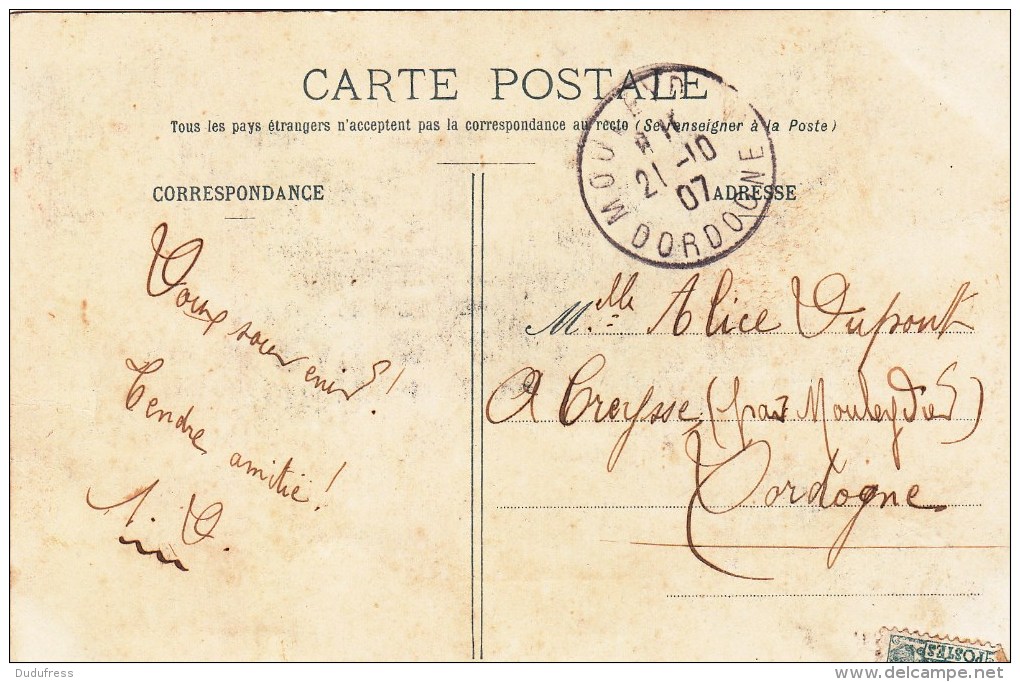 CARTE POSTALE
Tous les pays étrangers n'acceptent pas la correspondance au recto (Se renseigner à la Poste)
MOULEYD
21 -10
07
DORDOGNE
CORRESPONDANCE
ADRESSE
Doux souvenirs!
Tendre
amitié!
Mlle Alice Dupont
A Creysse (par Mouleydier)
Dordogne
POSTES
Dudufress
www.delcampe.net